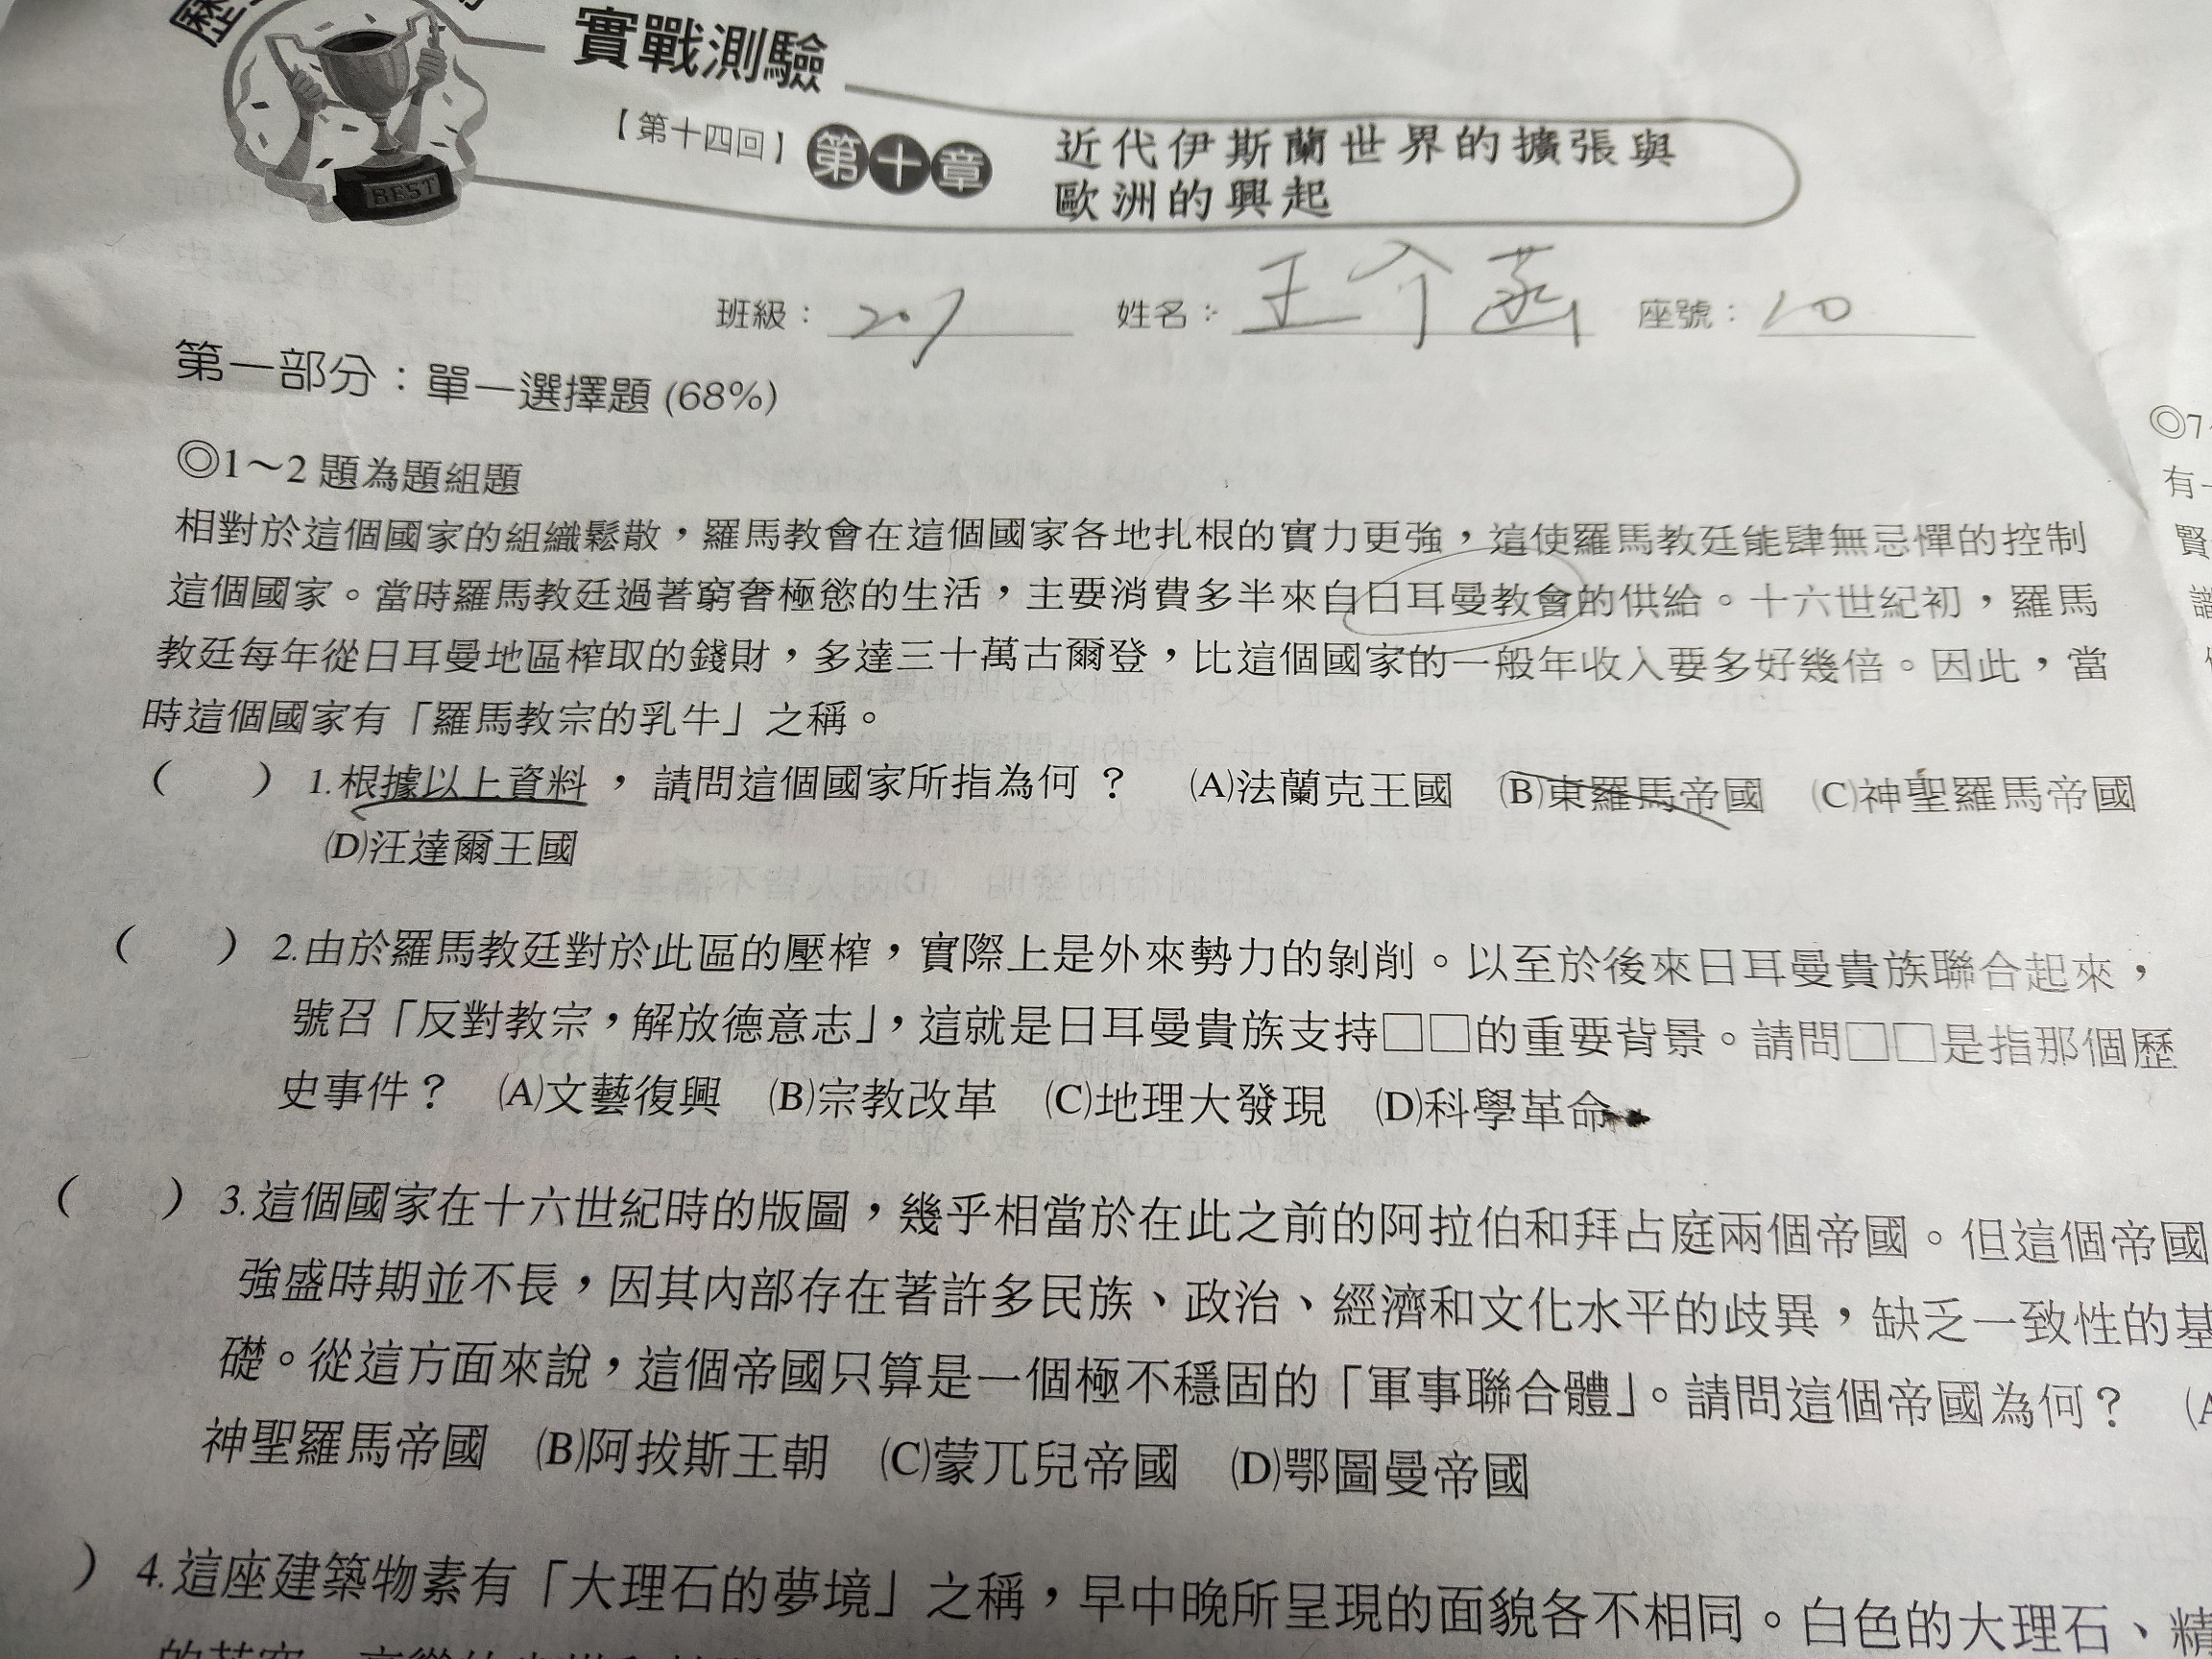 歷
實戰測驗
BEST
【第十四回】 第十章 近代伊斯蘭世界的擴張與
歐洲的興起
班級：207 姓名：王介菡 座號：10
第一部分：單一選擇題 (68%)
◎1～2 題為題組題
相對於這個國家的組織鬆散，羅馬教會在這個國家各地扎根的實力更強，這使羅馬教廷能肆無忌憚的控制
這個國家。當時羅馬教廷過著窮奢極慾的生活，主要消費多半來自日耳曼教會的供給。十六世紀初，羅馬
教廷每年從日耳曼地區榨取的錢財，多達三十萬古爾登，比這個國家的一般年收入要多好幾倍。因此，當
時這個國家有「羅馬教宗的乳牛」之稱。
（　　）1.根據以上資料，請問這個國家所指為何？ (A)法蘭克王國 (B)東羅馬帝國 (C)神聖羅馬帝國
(D)汪達爾王國
（　　）2.由於羅馬教廷對於此區的壓榨，實際上是外來勢力的剝削。以至於後來日耳曼貴族聯合起來，
號召「反對教宗，解放德意志」，這就是日耳曼貴族支持□□的重要背景。請問□□是指那個歷
史事件？ (A)文藝復興 (B)宗教改革 (C)地理大發現 (D)科學革命
（　　）3.這個國家在十六世紀時的版圖，幾乎相當於在此之前的阿拉伯和拜占庭兩個帝國。但這個帝國
強盛時期並不長，因其內部存在著許多民族、政治、經濟和文化水平的歧異，缺乏一致性的基
礎。從這方面來說，這個帝國只算是一個極不穩固的「軍事聯合體」。請問這個帝國為何？ (A
神聖羅馬帝國 (B)阿拔斯王朝 (C)蒙兀兒帝國 (D)鄂圖曼帝國
）4.這座建築物素有「大理石的夢境」之稱，早中晚所呈現的面貌各不相同。白色的大理石、精
◎7
有
賢